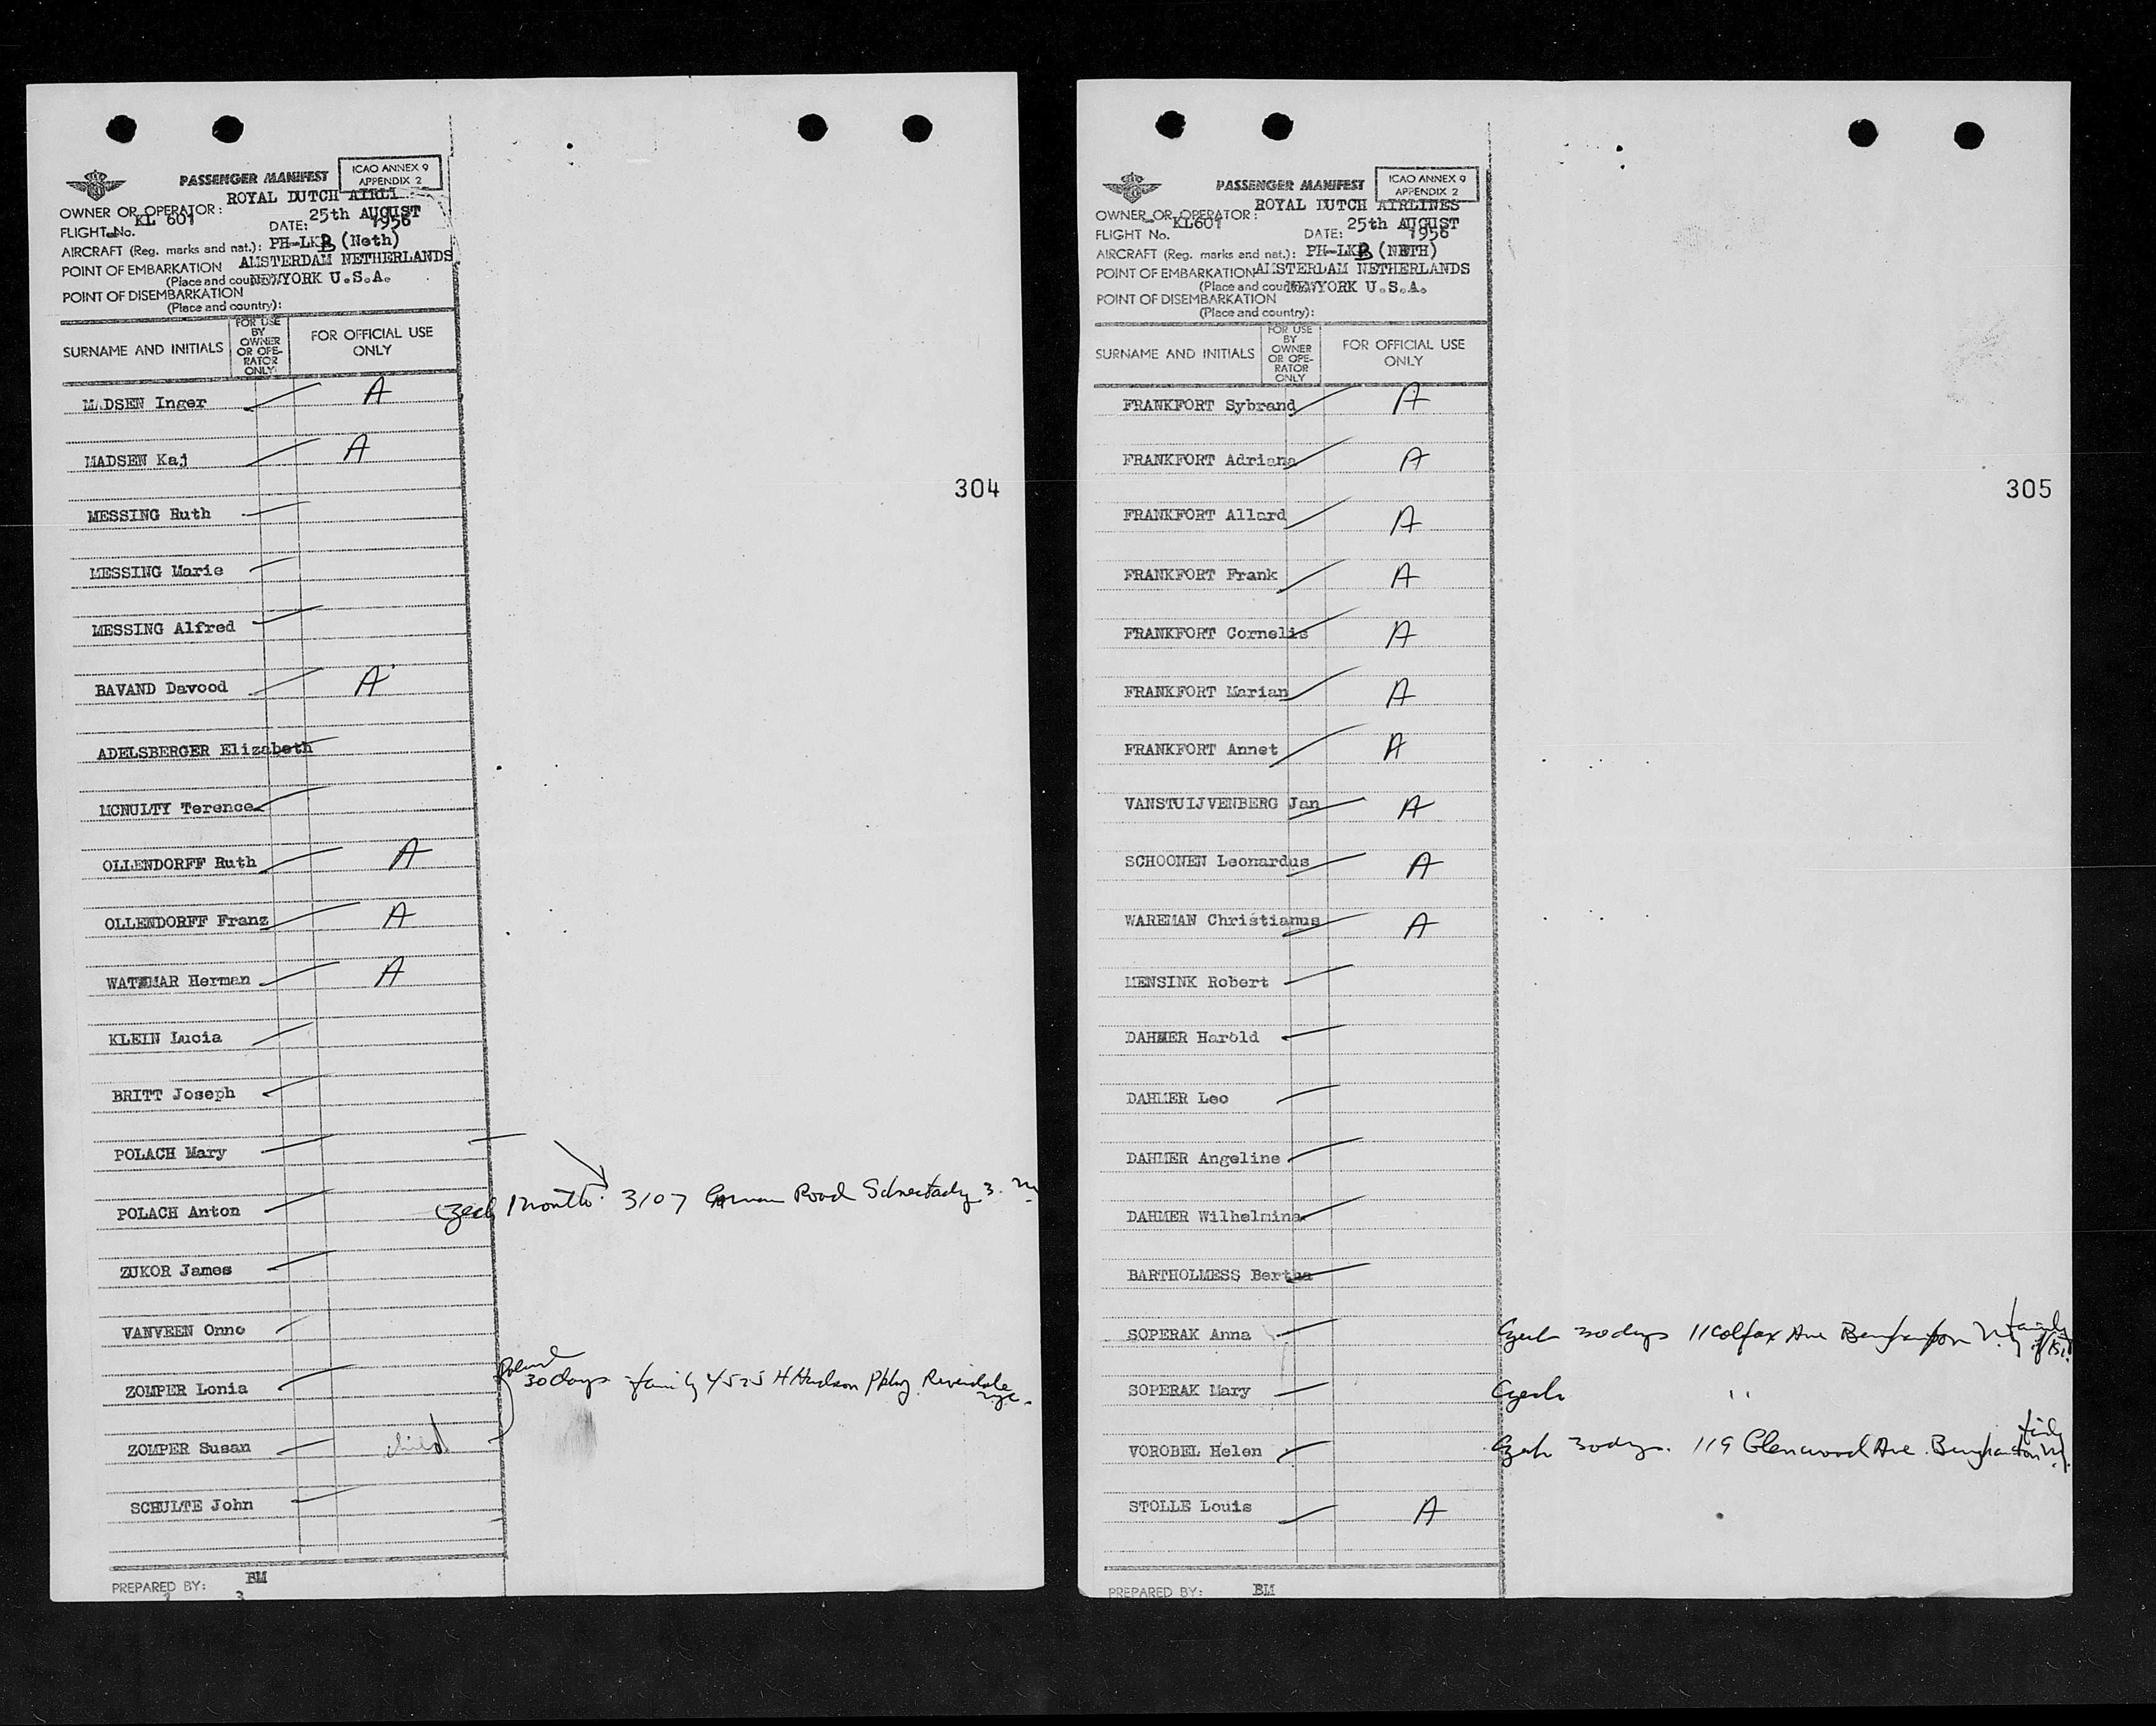 PASSENGER MANIFEST
ICAO ANNEX 9
APPENDIX 2
ROYAL DUTCH AIRLI
OWNER OR OPERATOR:
KL 601
25th AUGUST
FLIGHT No.
DATE:
1956
AIRCRAFT (Reg. marks and nat.): PH-LKB (Neth)
POINT OF EMBARKATION AMSTERDAM NETHERLANDS
(Place and country): NEWYORK U.S.A.
POINT OF DISEMBARKATION
(Place and country):
SURNAME AND INITIALS
FOR USE BY OWNER OR OPE-RATOR ONLY
FOR OFFICIAL USE ONLY
MADSEN Inger A
MADSEN Kaj A
304
MESSING Ruth
MESSING Marie
MESSING Alfred
BAVAND Davood A
ADELSBERGER Elizabeth
MCNULTY Terence
OLLENDORFF Ruth A
OLLENDORFF Franz A
Herman A
KLEIN Lucia
BRITT Joseph
POLACH Mary
POLACH Anton Czech 1 month 3107 Road Schnectady 3.
ZUKOR James
VANVEEN Onno
Poland
ZOMPER Lonia 30 days family 4525 H Hudson Pkwy. Riverdale NYC.
ZOMPER Susan child
SCHULTE John
PREPARED BY: BM
3
PASSENGER MANIFEST
ICAO ANNEX 9
APPENDIX 2
ROYAL DUTCH AIRLINES
OWNER OR OPERATOR:
KL601
25th AUGUST
FLIGHT No.
DATE:
1956
AIRCRAFT (Reg. marks and nat.): PH-LKB (NETH)
POINT OF EMBARKATION AMSTERDAM NETHERLANDS
(Place and country): NEWYORK U.S.A.
POINT OF DISEMBARKATION
(Place and country):
SURNAME AND INITIALS
FOR USE BY OWNER OR OPE-RATOR ONLY
FOR OFFICIAL USE ONLY
FRANKFORT Sybrand A
FRANKFORT Adriana A
305
FRANKFORT Allard A
FRANKFORT Frank A
FRANKFORT Cornelis A
FRANKFORT Marian A
FRANKFORT Annet A
VANSTUIJVENBERG Jan A
SCHOONEN Leonardus A
WAREMAN Christianus A
MENSINK Robert
DAHMER Harold
DAHMER Leo
DAHMER Angeline
DAHMER Wilhelmina
BARTHOLMESS Bertha
SOPERAK Anna Czech 30 days 11 Colfax Ave Binghamton N.Y. family
SOPERAK Mary Czech "
VOROBEL Helen Czech 30 days. 119 Glenwood Ave. Binghamton N.Y. family
STOLLE Louis A
PREPARED BY: BM